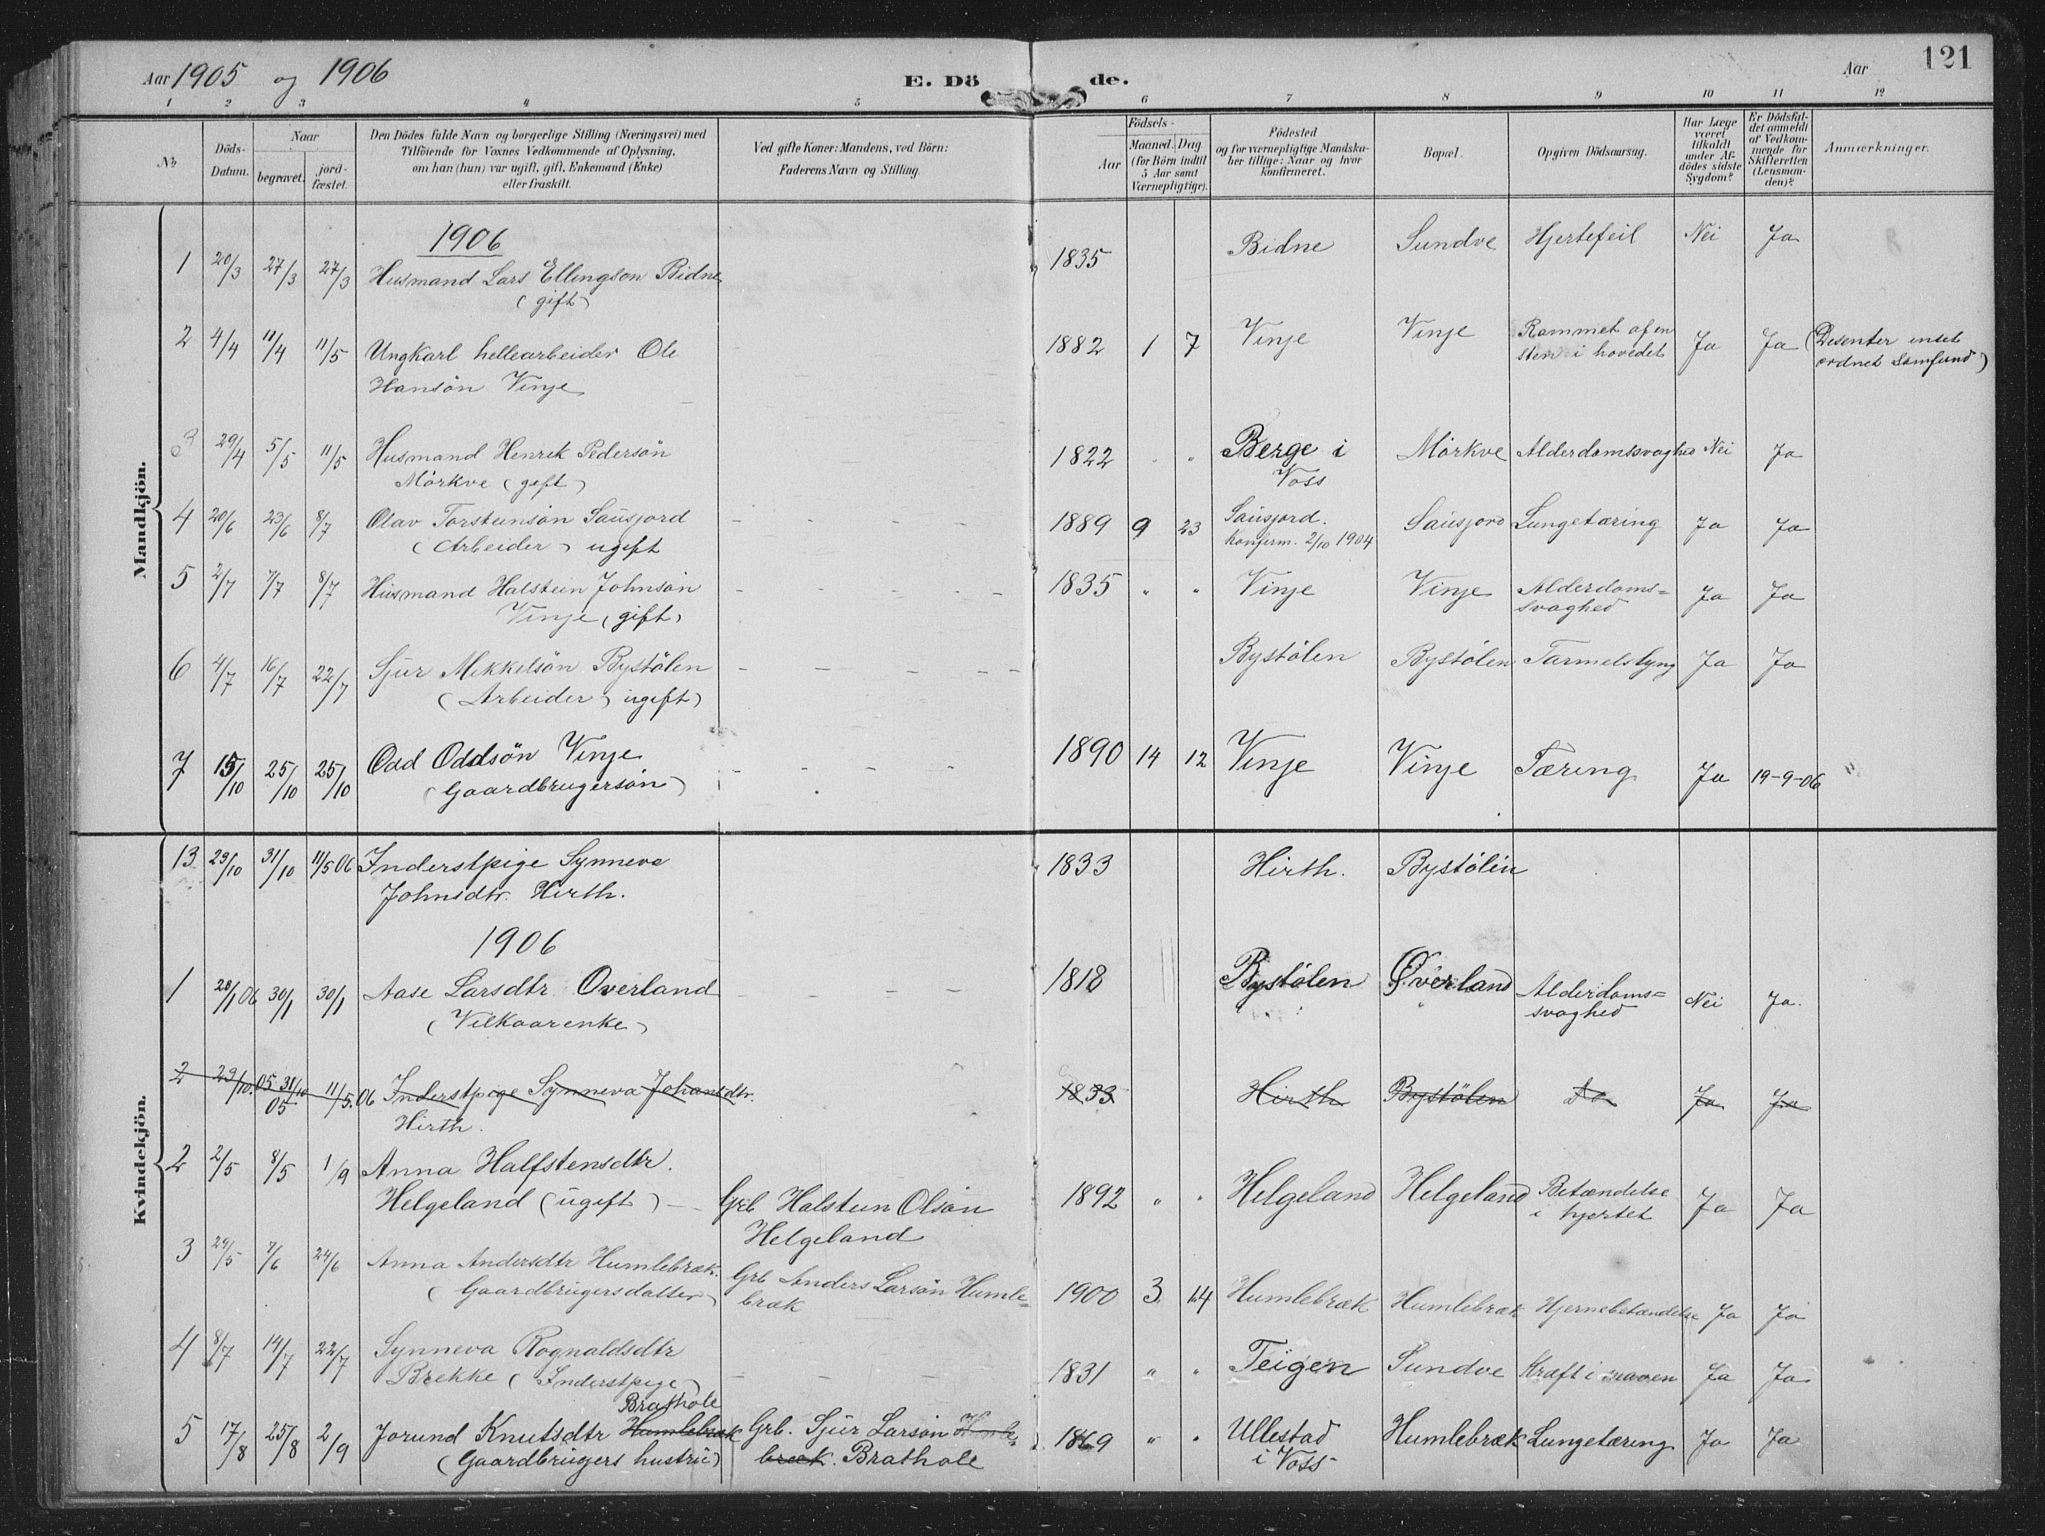 Aar 1905 og 1906 E. Dö de. Aar 121
1 2 3 4 5 6 7 8 9 10 11 12
No Döds-Datum. Naar begravet. jord-fæstet. Den Dödes fulde Navn og borgerlige Stilling (Næringsvei) med Tilföiende for Voxnes Vedkommende af Oplysning, om han (hun) var ugift, gift, Enkemand (Enke) eller fraskilt. Ved gifte Koner: Mandens, ved Börn: Faderens Navn og Stilling. Födsels- Aar Maaned. Dag. (for Börn indtil 5 Aar samt Værnepligtige). Födested og for værnepligtige Mandska-ber tillige: Naar og hvor konfirmeret. Bopæl. Opgiven Dödsaarsag. Har Læge været tilkaldt under Af-dödes sidste Sygdom? Er Dödsfal-det anmeldt af Vedkom-mende for Skifteretten (Lensman-den)? Anmærkninger.
Mandkjön.
1906
1 20/3 27/3 27/3 Husmand Lars Ellingson Bidne 1835 Bidne Sundve Hjertefeil Nei Ja
(gift)
2 4/4 11/4 11/5 Ungkarl hellearbeider Ole 1882 1 7 Vinje Vinje Rammet af en Ja Ja (Desenter intet
Hansön Vinje sten i hovedet ordnet Samfund)
3 29/4 5/5 11/5 Husmand Henrik Pedersön 1822 " Berge i Mörkve Alderdomssvaghed Nei Ja
Mörkve (gift) Voss
4 20/6 23/6 8/7 Olav Torsteinsön Sausjord 1889 9 23 Sausjord. Sausjord Lungetæring Ja Ja
(Arbeider) ugift Konfirm. 2/10 1904
5 2/7 7/7 8/7 Husmand Halstein Johnsön 1835 " " Vinje Vinje Alderdoms= Ja Ja
Vinje (gift) svaghed
6 4/7 16/7 22/7 Sjur Mikkelsön Bystölen Bystölen Bystölen Tarmelslyng Ja Ja
(Arbeider) ugift)
7 15/10 25/10 25/10 Odd Oddsön Vinje 1890 14 12 Vinje Vinje Tæring Ja 19-9-06
(Gaardbrugersön)
Kvindekjön.
13 23/10 31/10 11/5 06 Inderstpige Synneva 1833 Hirth. Bystölen
Johnsdtr. Hirth.
1906
1 20/1 06 30/1 30/1 Aase Larsdtr Överland 1818 Bystölen Överland Alderdoms= Nei Ja.
(Vilkaarenke) svaghed
2 23/10. 05 31/10 05 11/5.06 Inderstpige Synneva Johansdtr. 1833 Hirth Bystölen Do Ja Ja
Hirth.
2 2/5 8/5 1/9 Anna Halfstensdtr.
Helgeland (ugift) Grb Halstein Olsön 1892 " " Helgeland Helgeland Betændelse Ja Ja
Helgeland i hjertet
3 29/5 7/6 24/6 Anna Andersdtr Humlebræk.
(Gaardbrugersdatter) Grb Anders Larsön Humle= 1900 3 14 Humlebræk Humlebræk Hjernebetændelse Ja Ja
bræk
4 8/7 14/7 22/7 Synneva Rognaldsdtr 1831 " " Teigen Sundve Kræft i maven Ja Ja
Brekke (Inderstpige)
Brathole
5 17/8 25/8 2/9 Jorund Knutsdtr Humlebræk Grb. Sjur Larsön Humle= 1869 " " Ullestad Humlebræk Lungetæring Ja Ja
(Gaardbrugers hustru) bræk. Brathole i Voss